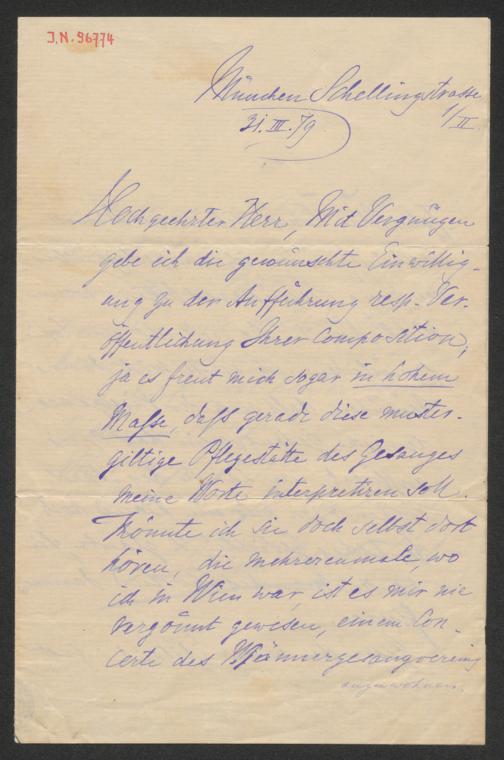 I.N. 96774
München Schellingstrasse
1/II
31. III. 79
Hochgeehrter Herr, Mit Vergnügen
gebe ich die gewünschte Einwillig-
ung zu der Aufführung resp. Ver-
öffentlichung Ihrer Composition,
ja es freut mich sogar in hohem
Maße, daß gerade diese muster-
giltige Pflegestätte des Gesanges
meine Worte interpretiren soll.
Könnte ich sie doch selbst dort
hören, die mehrerenmale, wo
ich in Wien war, ist es mir nie
vergönnt gewesen, einem Con-
certe des Männergesangvereins
anzuwohnen.